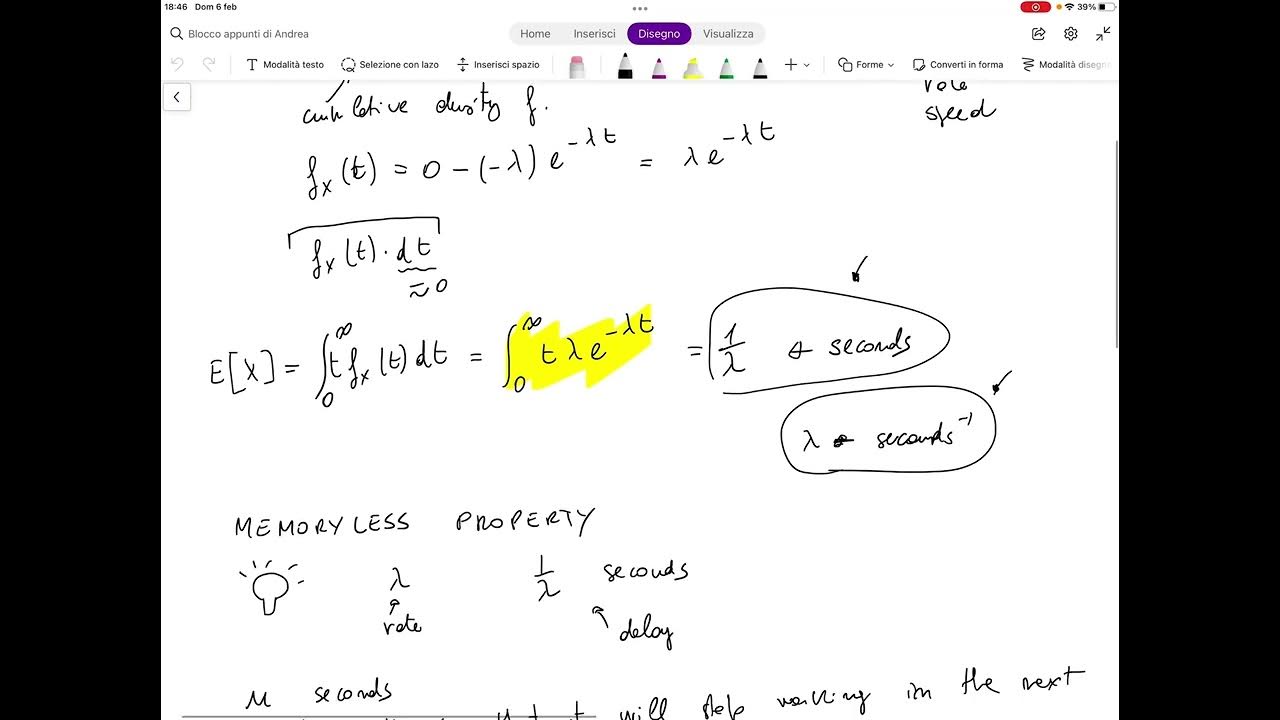 18:46 Dom 6 feb 39%
Blocco appunti di Andrea Home Inserisci Disegno Visualizza
Modalità testo Selezione con lazo Inserisci spazio Forme Converti in forma Modalità disegn
cumulative density f.
speed
fₓ(t) = 0 - (-λ) e^{-λt} = λe^{-λt}
fₓ(t) · dt
≈0
E[X] = ∫₀^∞ t fₓ(t) dt = ∫₀^∞ t λ e^{-λt} = 1/λ seconds
λ seconds⁻¹
MEMORYLESS PROPERTY
λ 1/λ seconds
rate delay
seconds
it will stop working in the next